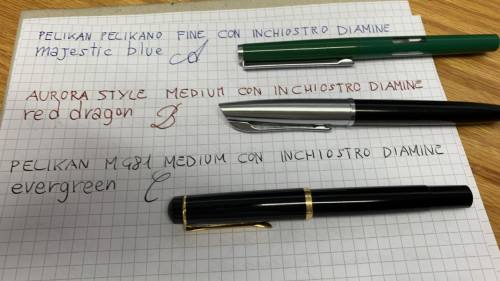 PELIKAN PELIKANO FINE CON INCHIOSTRO DIAMINE
majestic blue A
AURORA STYLE MEDIUM CON INCHIOSTRO DIAMINE
red dragon B
PELIKAN M481 MEDIUM CON INCHIOSTRO DIAMINE
evergreen C